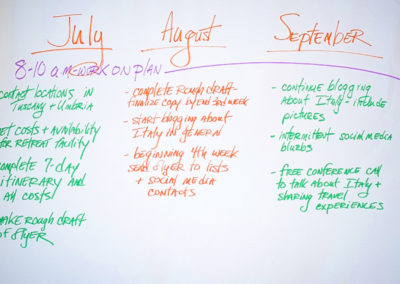 July
August
September
8-10 a.m-work on plan
contact locations in
Tuscany + Umbria
get costs + availability
for retreat facility
complete 7-day
itinerary and
all costs!
make rough draft
of flyer
- complete rough draft-
finalize copy by end 3rd week
- start blogging about
Italy in general
- beginning 4th week
send flyer to lists
+ social media
contacts
- continue blogging
about Italy - include
pictures
- intermittent social media
blurbs
- free conference call
to talk about Italy +
sharing travel
experiences